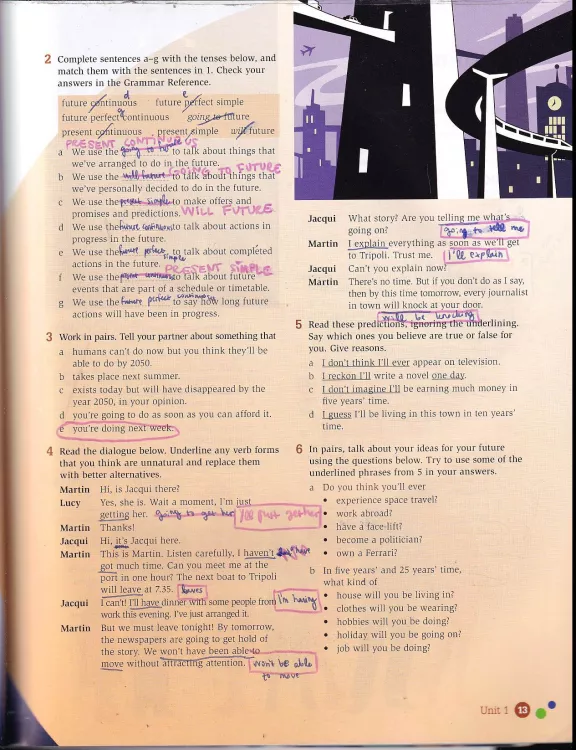 2 Complete sentences a–g with the tenses below, and
match them with the sentences in 1. Check your
answers in the Grammar Reference.
future continuous d future perfect simple e
future perfect continuous g going to future
present continuous present simple will future
PRESENT CONTINUOUS
a We use the going to future to talk about things that
we've arranged to do in the future.
GOING TO FUTURE
b We use the will future to talk about things that
we've personally decided to do in the future.
c We use the present simple to make offers and
promises and predictions. WILL FUTURE
d We use the future continuous to talk about actions in
progress in the future.
e We use the future perfect simple to talk about completed
actions in the future. PRESENT SIMPLE
f We use the present continuous to talk about future
events that are part of a schedule or timetable.
g We use the future perfect continuous to say how long future
actions will have been in progress.
3 Work in pairs. Tell your partner about something that
a humans can't do now but you think they'll be
able to do by 2050.
b takes place next summer.
c exists today but will have disappeared by the
year 2050, in your opinion.
d you're going to do as soon as you can afford it.
e you're doing next week.
4 Read the dialogue below. Underline any verb forms
that you think are unnatural and replace them
with better alternatives.
Martin Hi, is Jacqui there?
Lucy Yes, she is. Wait a moment, I'm just
getting her. going to get her I'll just get her
Martin Thanks!
Jacqui Hi, it's Jacqui here.
Martin This is Martin. Listen carefully, I haven't
got much time. Can you meet me at the
port in one hour? The next boat to Tripoli
will leave at 7.35. leaves
Jacqui I can't! I'll have dinner with some people from I'm having
work this evening. I've just arranged it.
Martin But we must leave tonight! By tomorrow,
the newspapers are going to get hold of
the story. We won't have been able to
move without attracting attention. won't be able
to move
Jacqui What story? Are you telling me what's
going on? going to tell me
Martin I explain everything as soon as we'll get
to Tripoli. Trust me. I'll explain
Jacqui Can't you explain now?
Martin There's no time. But if you don't do as I say,
then by this time tomorrow, every journalist
in town will knock at your door.
will be knocking
5 Read these predictions, ignoring the underlining.
Say which ones you believe are true or false for
you. Give reasons.
a I don't think I'll ever appear on television.
b I reckon I'll write a novel one day.
c I don't imagine I'll be earning much money in
five years' time.
d I guess I'll be living in this town in ten years'
time.
6 In pairs, talk about your ideas for your future
using the questions below. Try to use some of the
underlined phrases from 5 in your answers.
a Do you think you'll ever
• experience space travel?
• work abroad?
• have a face-lift?
• become a politician?
• own a Ferrari?
b In five years' and 25 years' time,
what kind of
• house will you be living in?
• clothes will you be wearing?
• hobbies will you be doing?
• holiday will you be going on?
• job will you be doing?
Unit 1 13